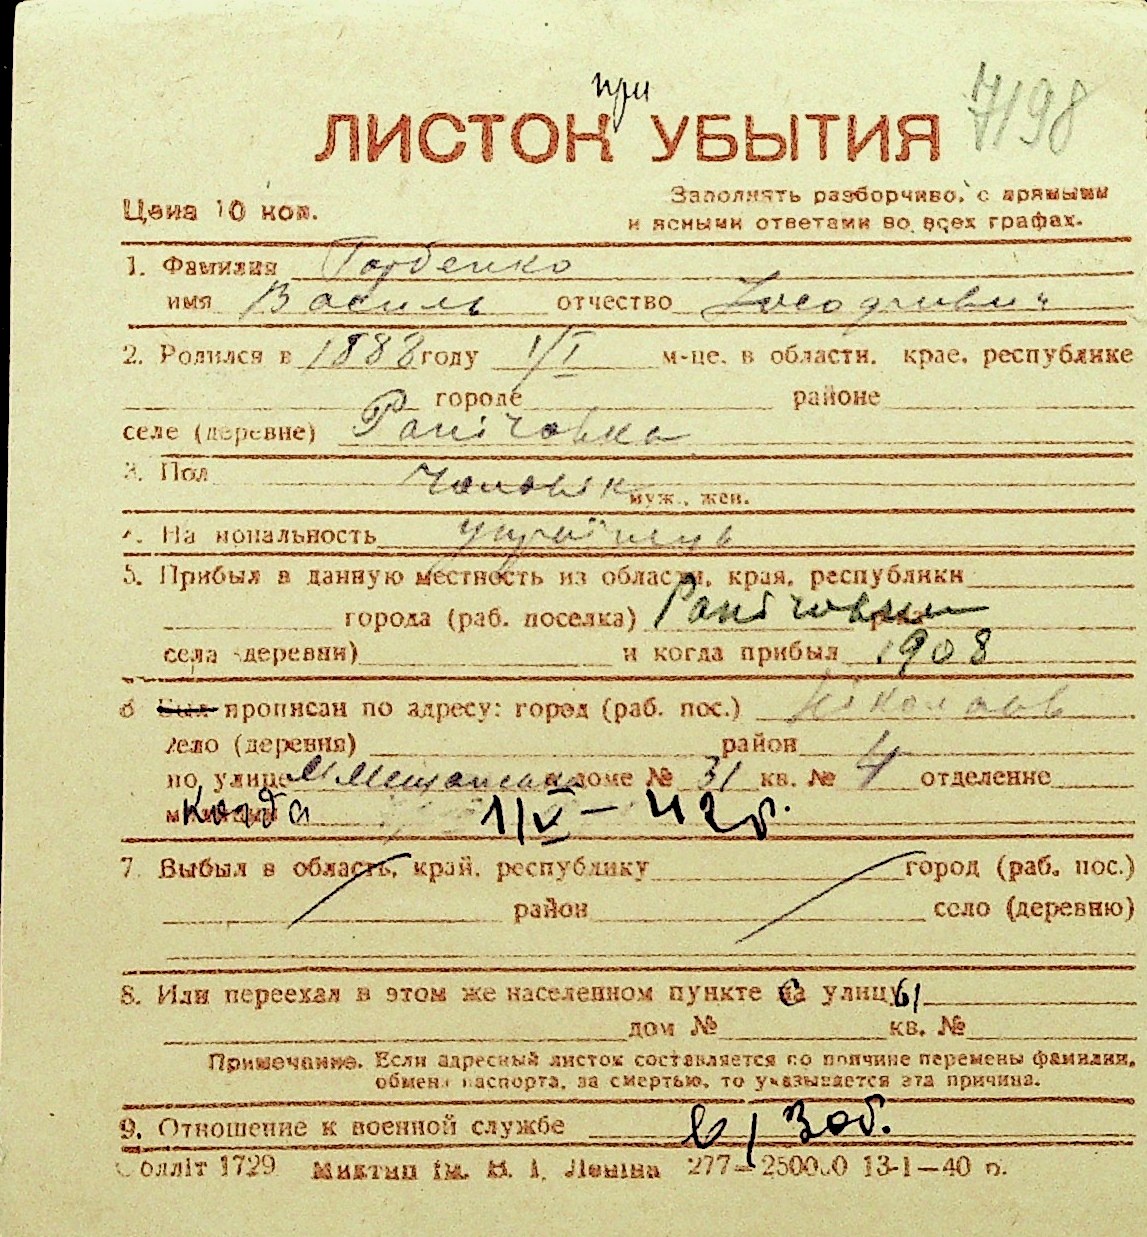 при
ЛИСТОК УБЫТИЯ 7198
Цена 10 коп.
Заполнять разборчиво, с прямыми
и ясными ответами во всех графах.
1. Фамилия Горбенко
имя Василь отчество
2. Родился в 1888 году 1/I м-це, в области, крае, республике
городе районе
селе (деревне) Панічовка
3. Пол Чоловік муж., жен.
4. Национальность українець
5. Прибыл в данную местность из области, края, республики
города (раб. поселка) Панічовки
села (деревни) и когда прибыл 1908
6 Был прописан по адресу: город (раб. пос.) Ніколаев
село (деревня) район
по улице М Мещанская доме № 31 кв. № 4 отделение
милиции Когда 1/V – 42 г.
7. Выбыл в область, край, республику город (раб. пос.)
район село (деревню)
8. Или переехал в этом же населенном пункте с улицы
дом № кв. №
Примечание. Если адресный листок составляется по причине перемены фамилии,
обмена паспорта, за смертью, то указывается эта причина.
9. Отношение к военной службе в/зоб.
Облліт 1729 Миктип ім. В. І. Леніна 277—250000 13-1—40 р.